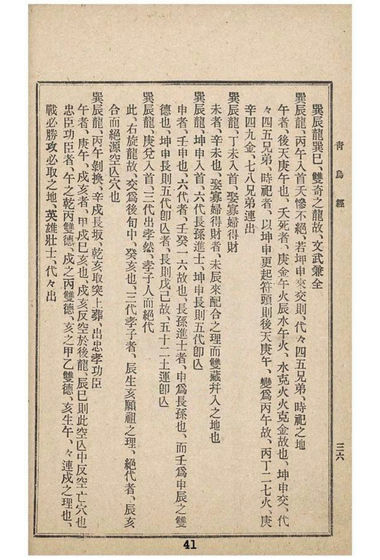 靑烏經
三六
巽辰龍巽巳、雙奇之龍故、文武兼全
巽辰龍、丙午入首天慘不絕、若坤申交交則、代々四五兄弟、時祀之地
午者、後天庚午也、夭死者、庚金午火辰水午火、水克火火克金故也、坤申交、代
々四五兄弟、時祀者、以坤申更起符頭則後天庚午、變爲丙午故、丙丁二七火、庚
辛四九金、七八兄弟連出
巽辰龍、丁未入首、娶寡婦得財
未者、辛未也、娶寡婦得財者、未辰來配合之理而雙藏幷入之地也
巽辰龍、坤申入首、六代長孫進士、坤申長則五代卽囚
申者、壬申也、六代者、壬癸一六故也、長孫進士者、申爲長孫也、而壬爲申辰之雙
德也、坤申長則五代卽囚者、長則戊己故、五十二土運卽囚
巽辰龍、庚兌入首、三代出孝然、孝子人而絕代
此、右旋龍故、交爲後旬中、癸亥也、三代孝子者、辰生亥願祖之理、絕代者、辰亥
合而絕源空囚穴也
巽辰龍、丙午剝換、辛戌長坂、乾亥取突上葬、出忠孝功臣
午者、庚午、戌亥者、甲戌巳亥也、戌亥反空於後龍、辰巳則此空囚中反空亡穴也
忠臣功臣者、午之乾丙雙德、戌之丙雙德、亥之甲乙雙德、亥生午、々連戌之理也、
戰必勝攻必取之地、英雄壯士、代々出
41